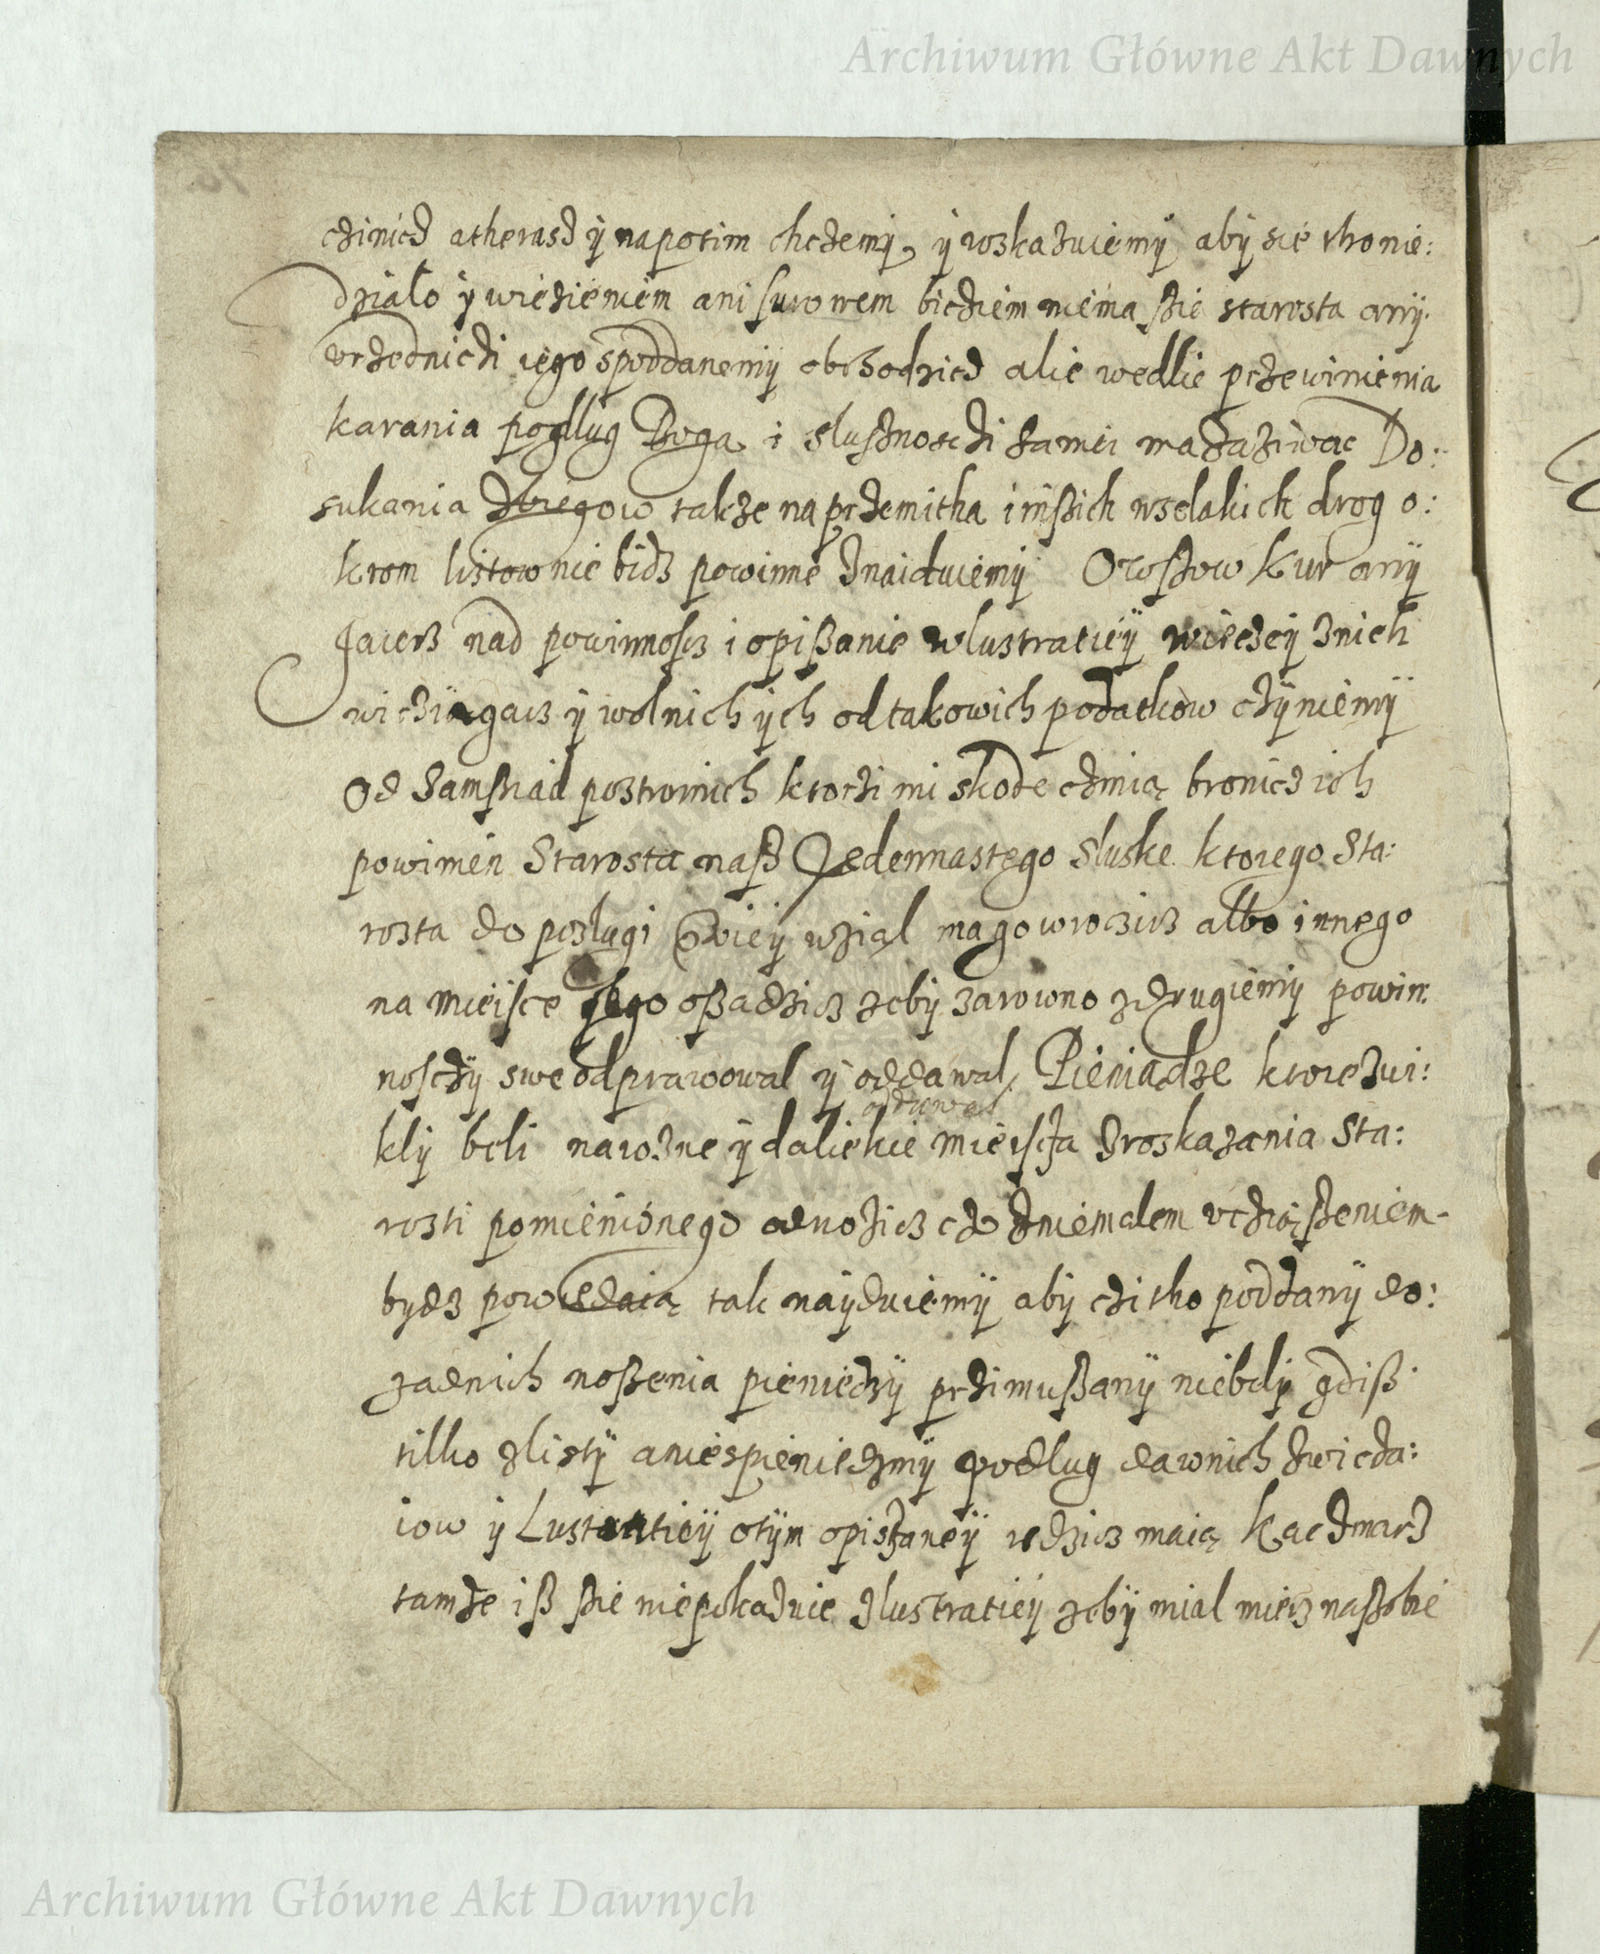 Archiwum Główne Akt Dawnych
cżinicz atherasz ÿ napotim chcżemÿ, ÿ wskazuiemÿ abÿ sie tho nie:
działo ÿ wiezieniem ani surowem bicżiem niema ßie starosta anÿ
vrzednicżi iego spoddanemÿ obchodzicz alie wedlie przewinienia
karania podlug Boga i slußnoscżi
sukania zbiegow takze na przemitha i inßich wselakich drog o:
krom listow nie bidz powinne znaiduiemÿ Owssow kur anÿ
Jaiecz nad powinnoscz i opißanie w lustraticÿ wiecżeÿ znich
wicżiagacz ÿ wolnich ÿch od takowich podatkow cżÿniemÿ
Od Samßiad postronich ktorżi mi skode cżinią bronicz ich
powinien Starosta naß Jedennastego sluske ktorego Sta:
rosta do poslugi swieÿ wzial ma go wrocicz albo innego
na mieisce iego oßadzicz zebÿ zarowno zdrugiemÿ powin:
noscżÿ swe odprawowal ÿ oddawal, Pieniadze ktore zwi:
oddawal
klÿ beli na rozne ÿ daliekie mieiscża z roskazania Sta:
rosti pomienionego odnosicz czo z niemalem vcżiąßeniem
bydz powiedaią tak naÿduiemÿ abÿ cżi tho poddanÿ do:
zadnich noßenia pieniedzÿ przimußanÿ niebeli gdiß
tilko zlistÿ anie spieniedzmÿ podlug dawnich zwicża:
iow ÿ Lustraticÿ otÿm opisaneÿ chodzicz maią Kaczmarz
tamże iß ßie niepokazuie zlustraticÿ zebÿ mial miecz na ßobie
Archiwum Główne Akt Dawnych